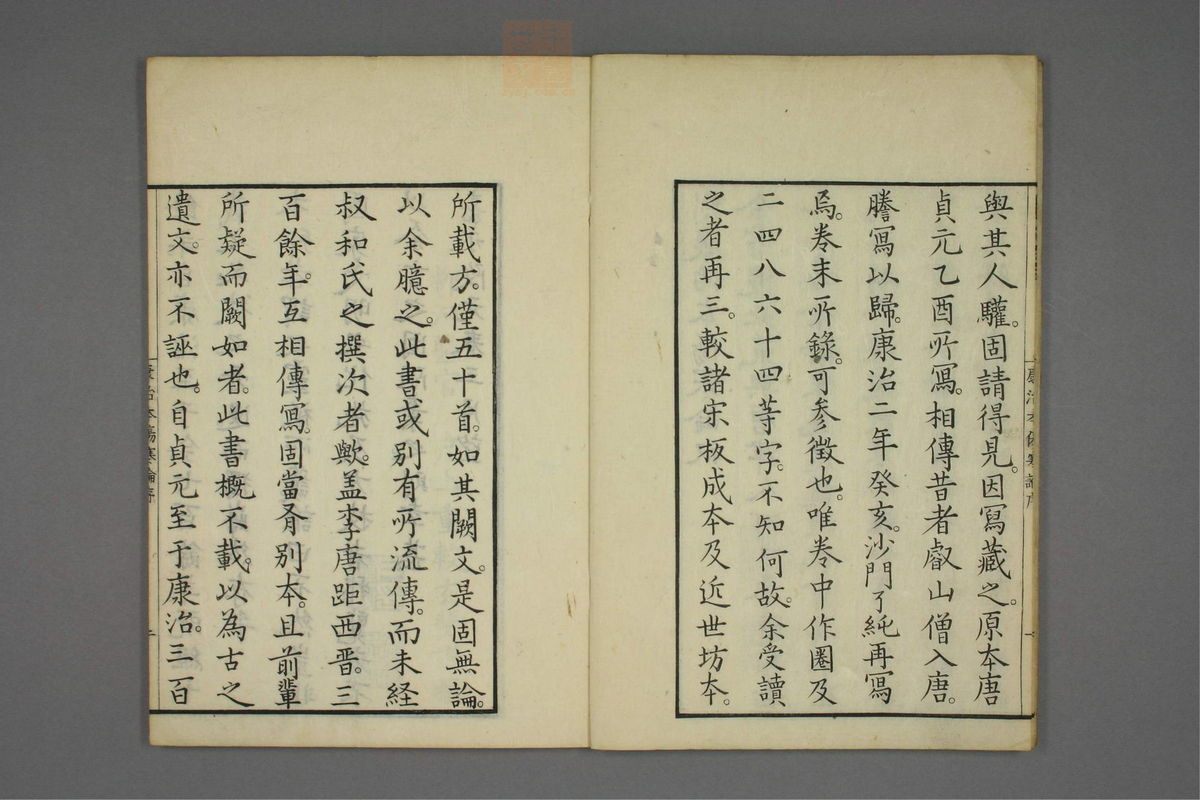 與其人驩。固請得見。因寫藏之。原本唐
貞元乙酉所寫。相傳昔者叡山僧入唐。
謄寫以歸。康治二年癸亥。沙門了純再寫
焉。卷末所錄。可參徵也。唯卷中作圈及
二四八六十四等字。不知何故。余受讀
之者再三。較諸宋板成本及近世坊本。
康治本傷寒論序
所載方。僅五十首。如其闕文。是固無論。
以余臆之。此書或別有所流傳。而未経
叔和氏之撰次者歟。盖李唐距西晋。三
百餘年。互相傳寫。固當有別本。且前輩
所疑而闕如者。此書概不載。以為古之
遺文。亦不誣也。自貞元至于康治。三百
康治本傷寒論序
二